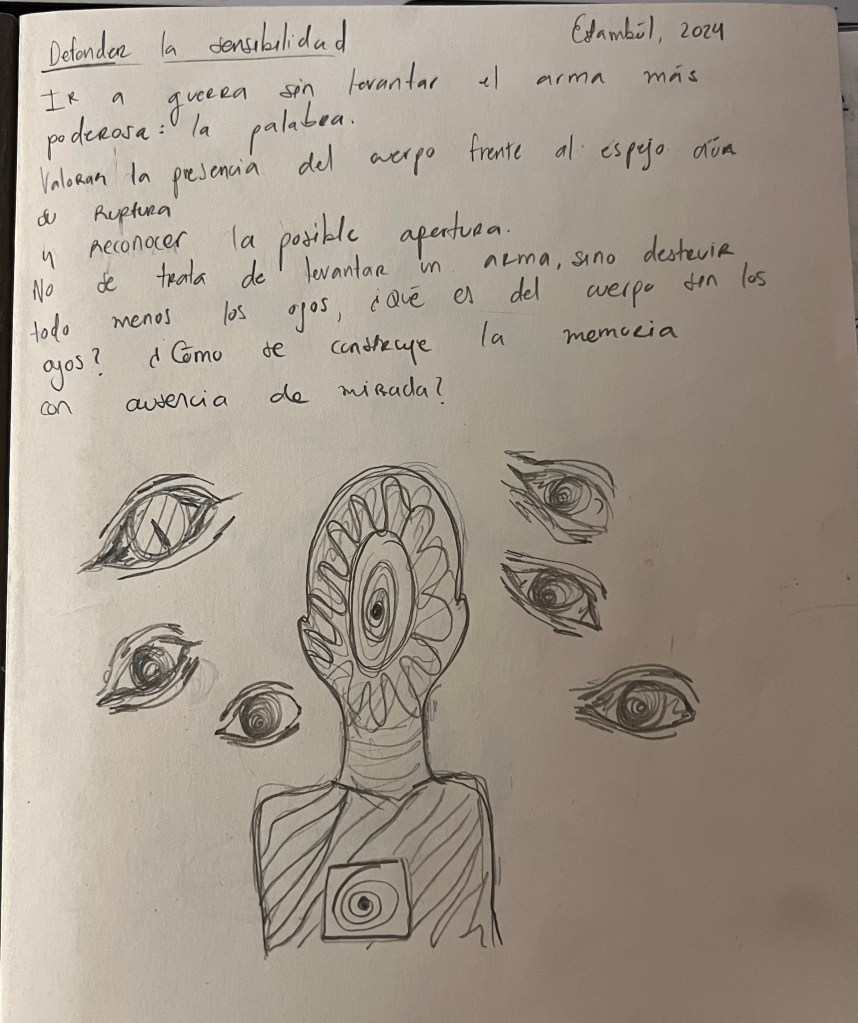 Defender la sensibilidad
Estambúl, 2024
IR a guerra sin levantar el arma más
poderosa: la palabra.
Valorar la presencia del cuerpo frente al espejo aún
de Ruptura
y reconocer la posible apertura.
No se trata de levantar un arma, sino destruir
todo menos los ojos, ¿Qué es del cuerpo sin los
ojos? ¿Cómo se construye la memoria
con ausencia de mirada?